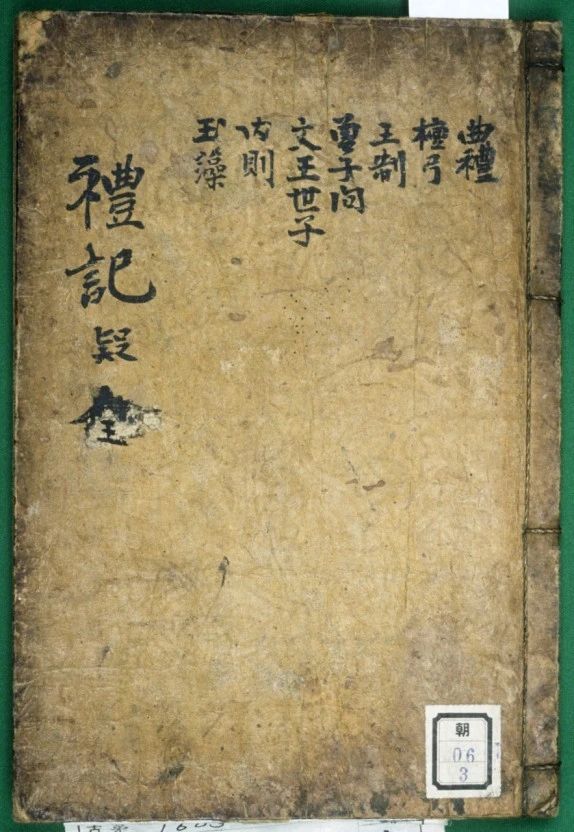 曲禮
檀弓
王制
曽子问
文王世子
内則
玉藻
禮記疑
全
朝
06
3